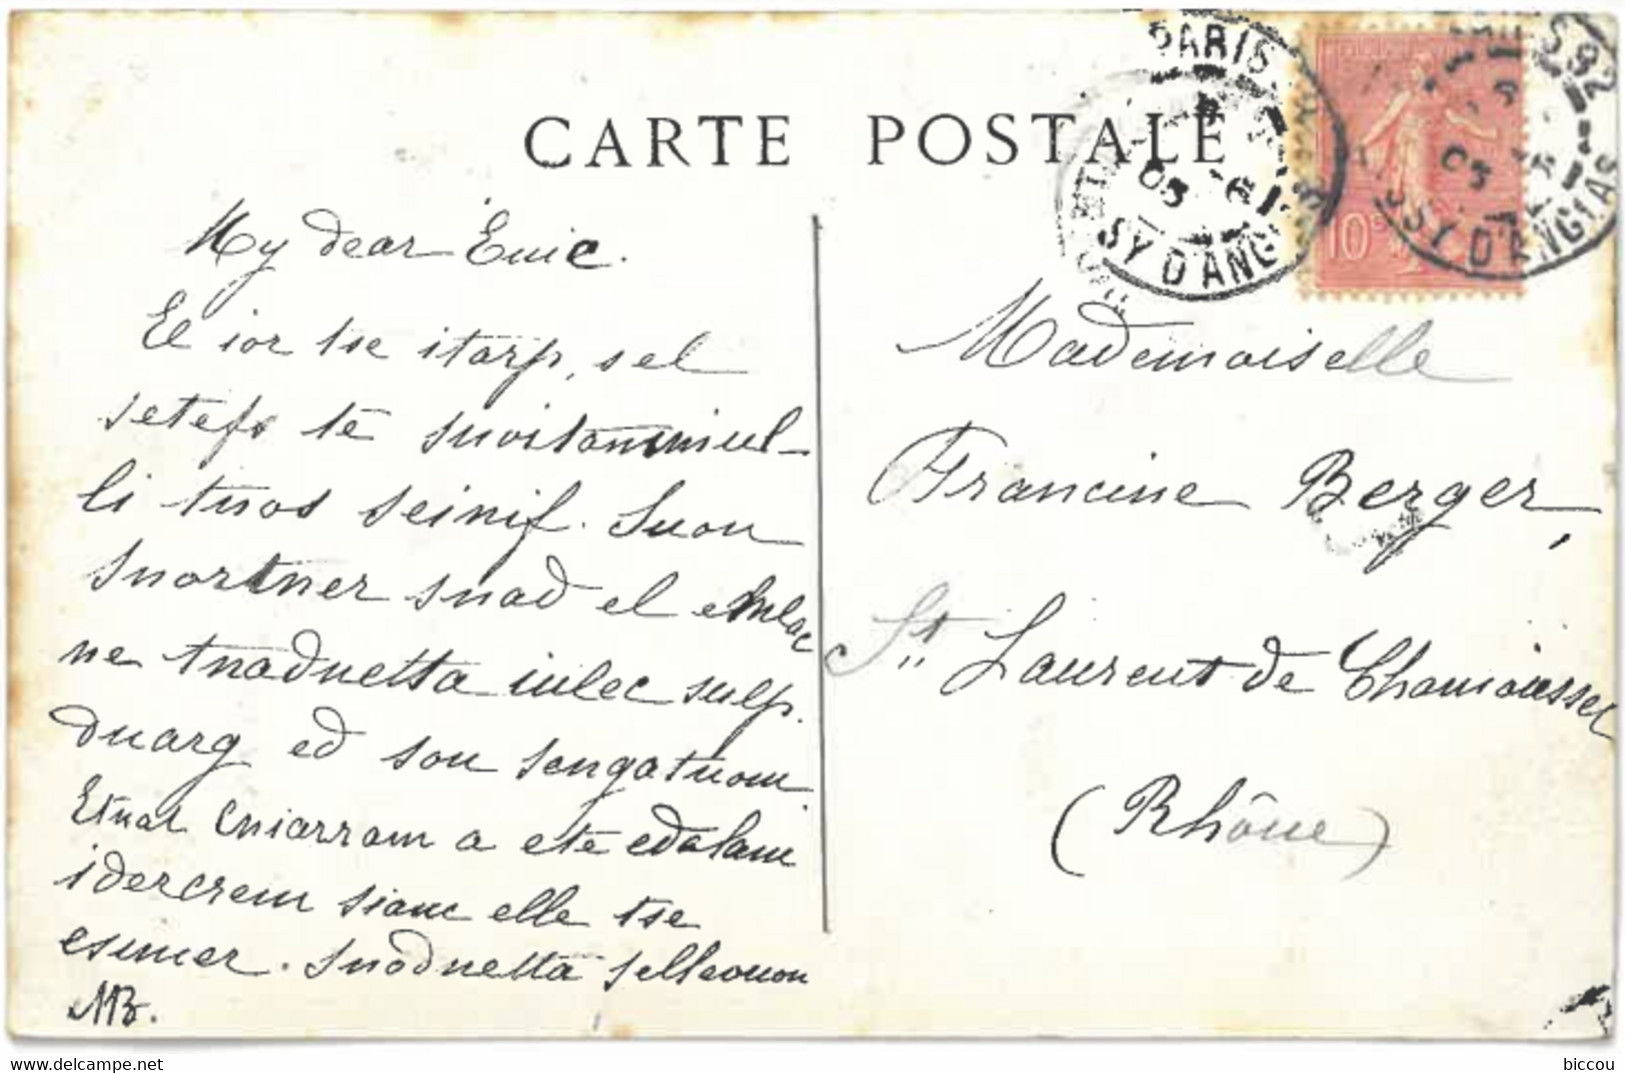 CARTE POSTALE
PARIS
05
SY D'ANG
10c
05
SSY D'ANGLAS
My dear
El ior tse itarp, sel
setef te snoitanimul-
li tnos seinif. Suon
snortner snad el emlac
ne tnadnetta iulec sulp
dnarg ed son sengatnom.
Etnat Eniarram a ete edalam
idercrem siam elle tse
esimer. Snodnetta sellevuon
MB.
Mademoiselle
Francine Berger,
St Laurent de Chamousset
(Rhône)
biccou